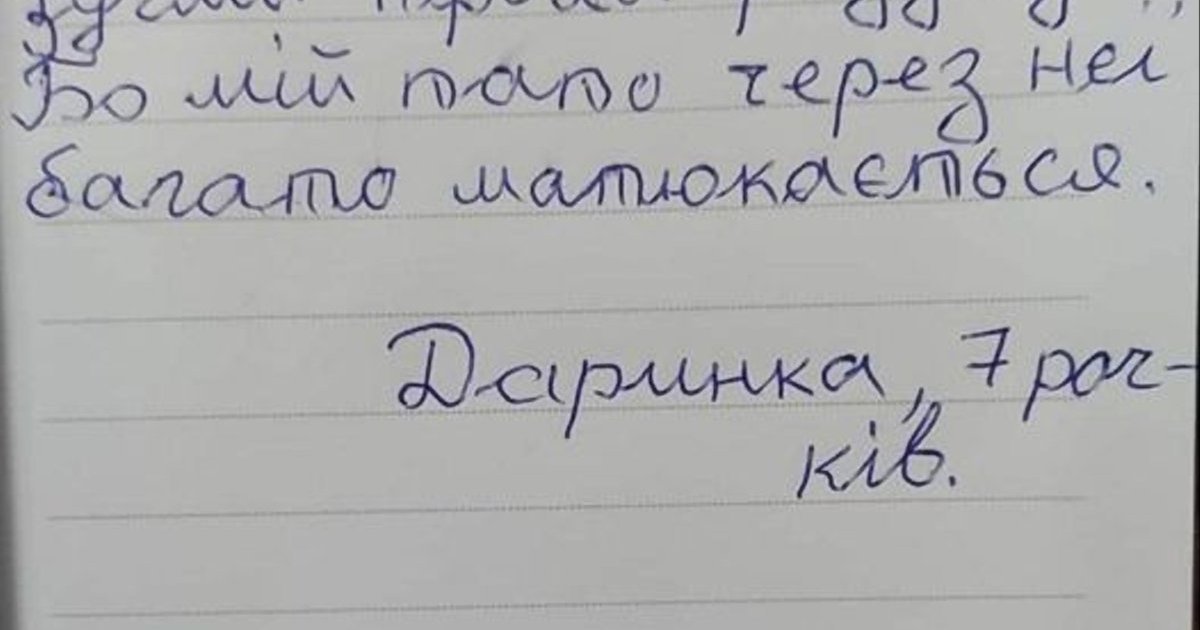 Бо мій тато через неї
багато матюкається.
Даринка, 7 роч-
ків.